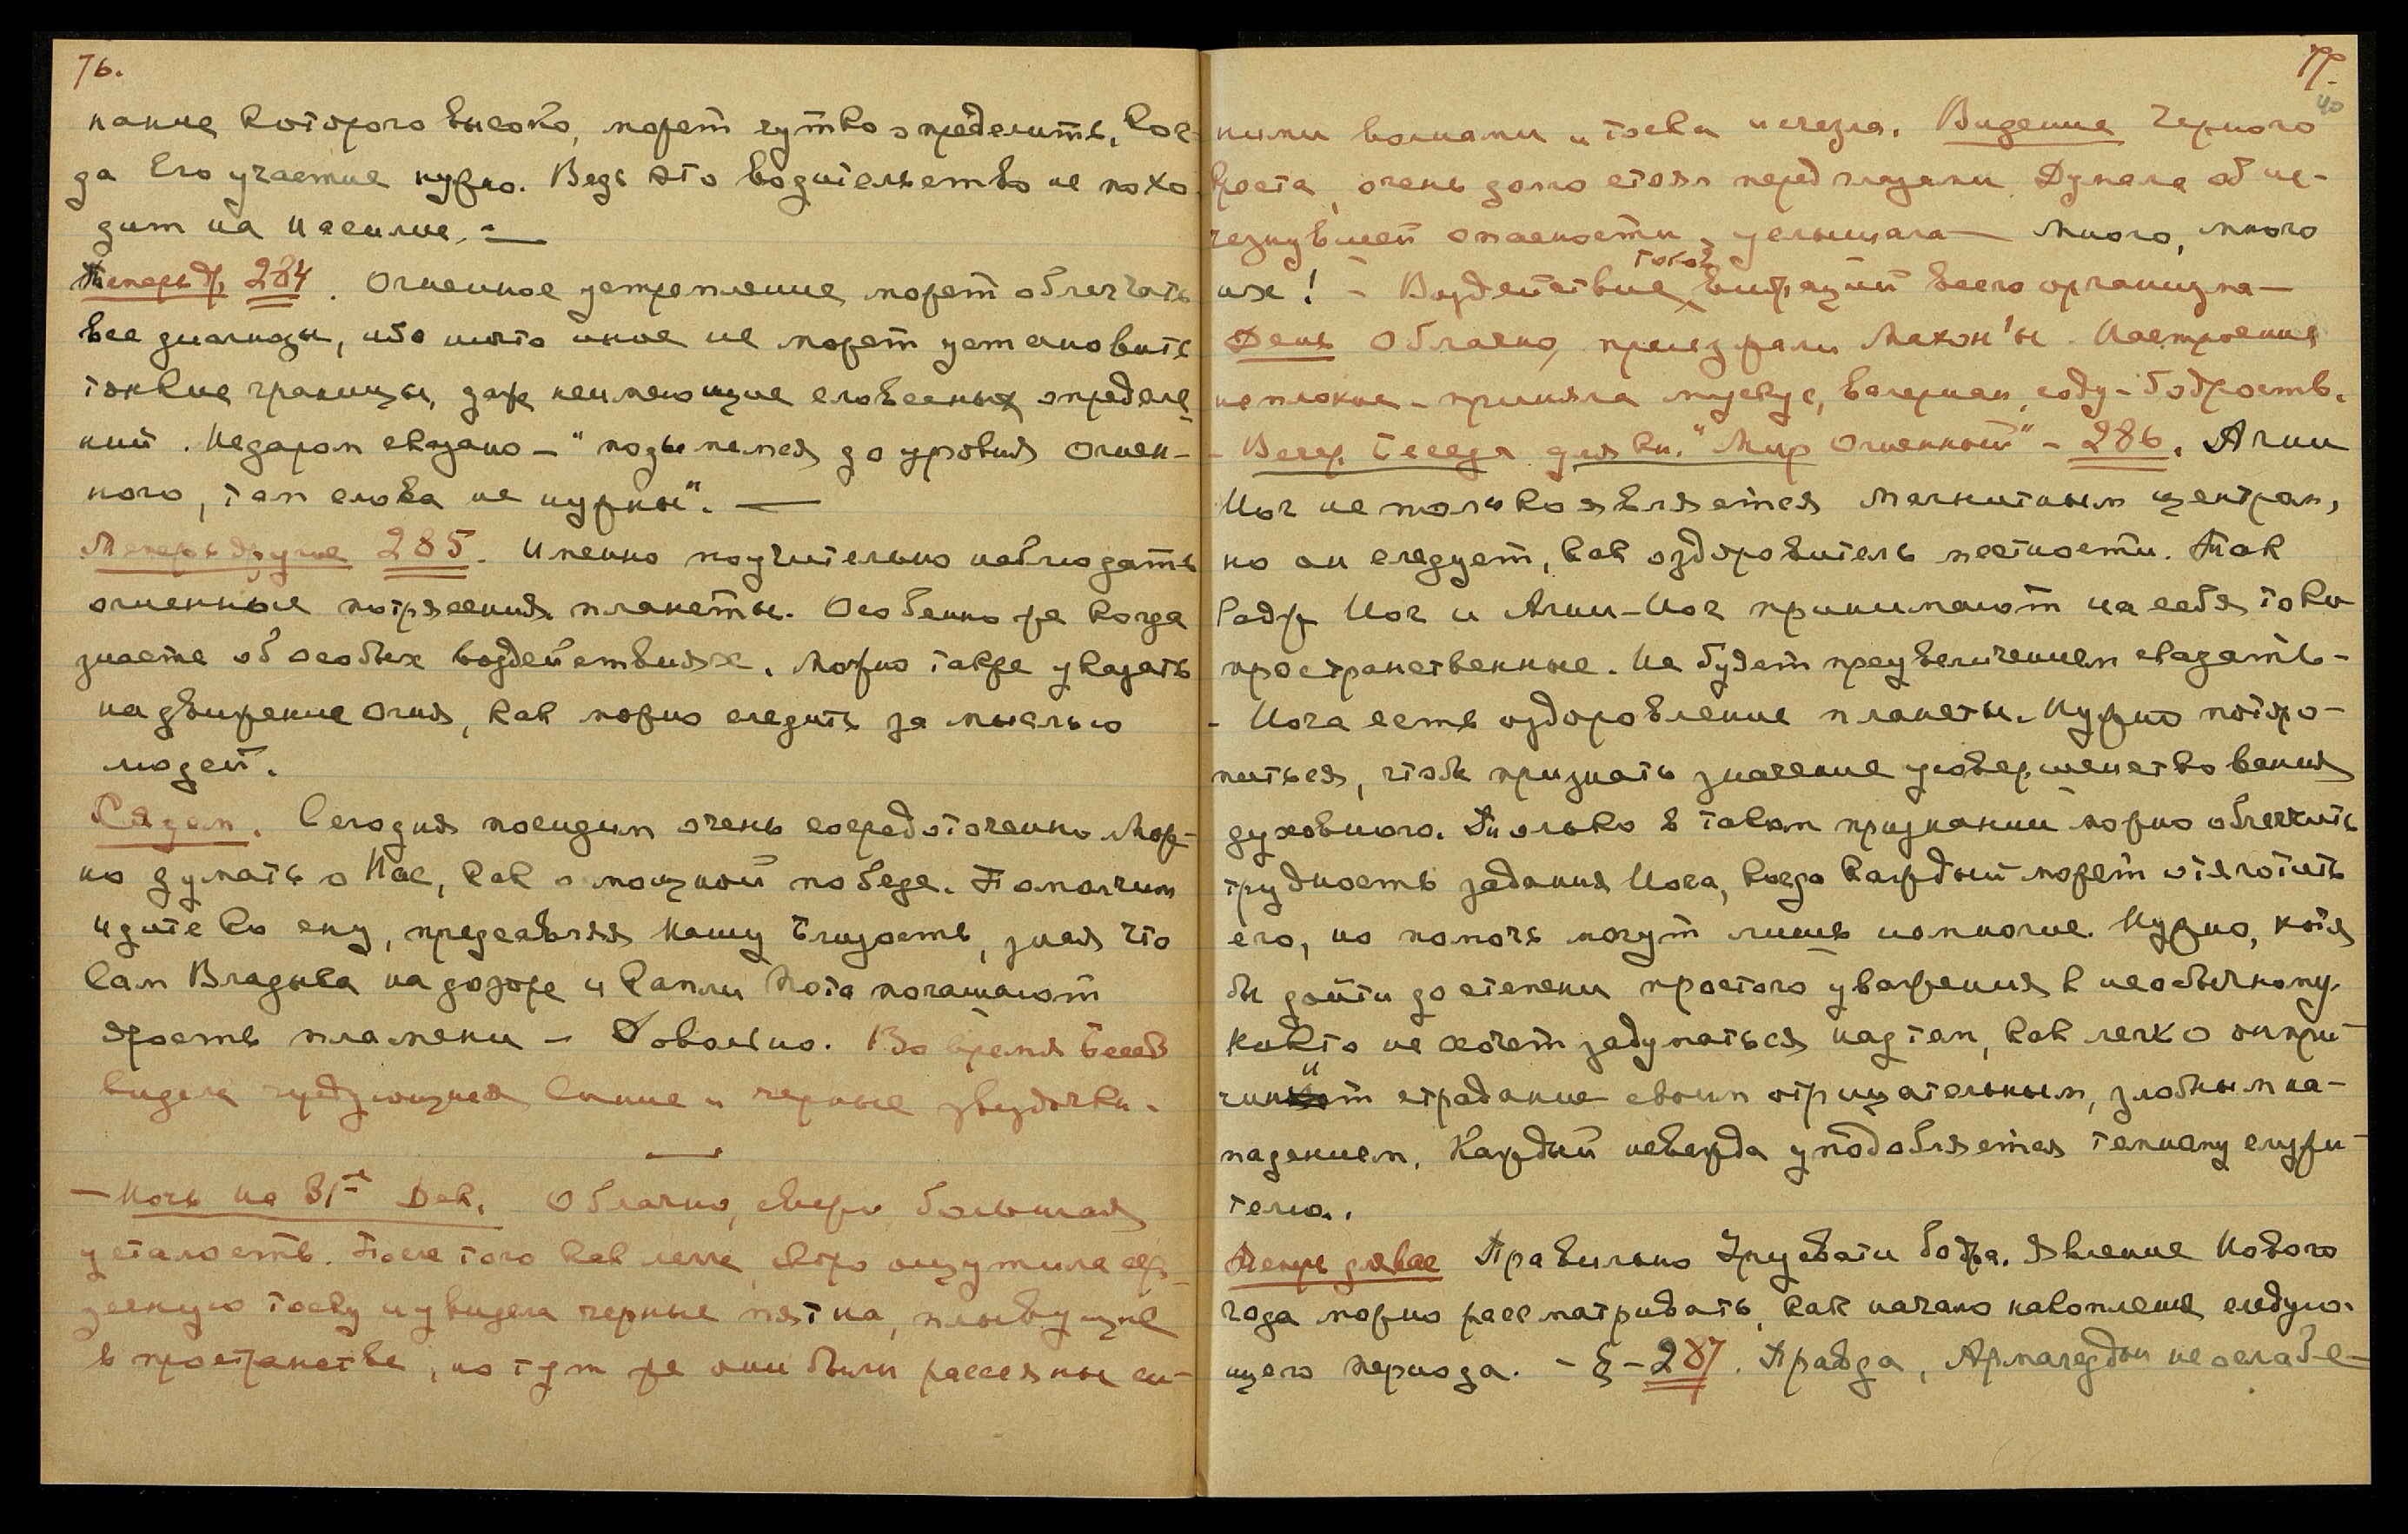 76.
нание которого высоко, может чутко определить, ког-
да Его участие нужно. Ведь это водительство не похо-
дит на насилие. —
Теперь др. 284. Огненное устремление может облегчать
все диагнозы, ибо ничто иное не может установить
тонкие границы, даже неимеющие словесных определе-
ний. Недаром сказано — "подымемся до уровня огнен-
ного, там слова не нужны". —
Теперь другие 285. Именно поучительно наблюдать
огненные потрясения планеты. Особенно же когда
знаете об особых воздействиях. Можно также указать
на движение огня, как можно следить за мыслью
людей.
Сядем. Сегодня посидим очень сосредоточенно. Мож-
но думать о Нас, как о мощной победе. Помолчим
Идите ко сну, представляя Нашу Близость, зная что
Сам Владыка на дозоре и капли Пота погашают
ярость пламени — Довольно. Во время Бесед
видела синие и черные звездочки.
— Ночь на 31е Дек. Облачно, свежо, большая
усталость. После того как легла, скоро ощутила сер-
дечную тоску и увидела черные пятна, плывущие
в пространстве, но тут же они были рассеяны си-
77.
40
ними волнами и тоска исчезла. Видение Черного
Креста, очень долго стоял перед глазами. Думала об ис-
чезнувшей опасности, услышала — много, много
их! — Воздействие токов вибраций всего организма —
День Облачно, приезжали Махон'ы. Настроение
неплохое — приняла мускус, валериан, соду — бодрость.
— Вечер. Беседа для кн. "Мир Огненный" — 286. Агни
Йог не только является магнитным центром,
но он следует, как оздоровитель местности. Так
Радж Йог и Агни-Йог принимают на себя токи
пространственные. Не будет преувеличением сказать —
— Йога есть оздоровление планеты. Нужно поторо-
питься, чтобы признать значение усовершенствования
духовного. Только в таком признании можно облегчить
трудность задания Йога, когда каждый может отяготить
его, но помочь могут лишь немногие. Нужно, хотя
бы дойти до степени простого уважения к необычному.
Никто не хочет задуматься над тем, как легко он при-
чинит страдание своим отрицательным, злобным на-
падением. Каждый невежда уподобляется темному служи-
телю.
Теперь для вас Правильно Урусвати бодра. Явление Нового
года можно рассматривать, как начало накопления следую-
щего периода. — § — 287. Правда, Армагеддон не ослабе-